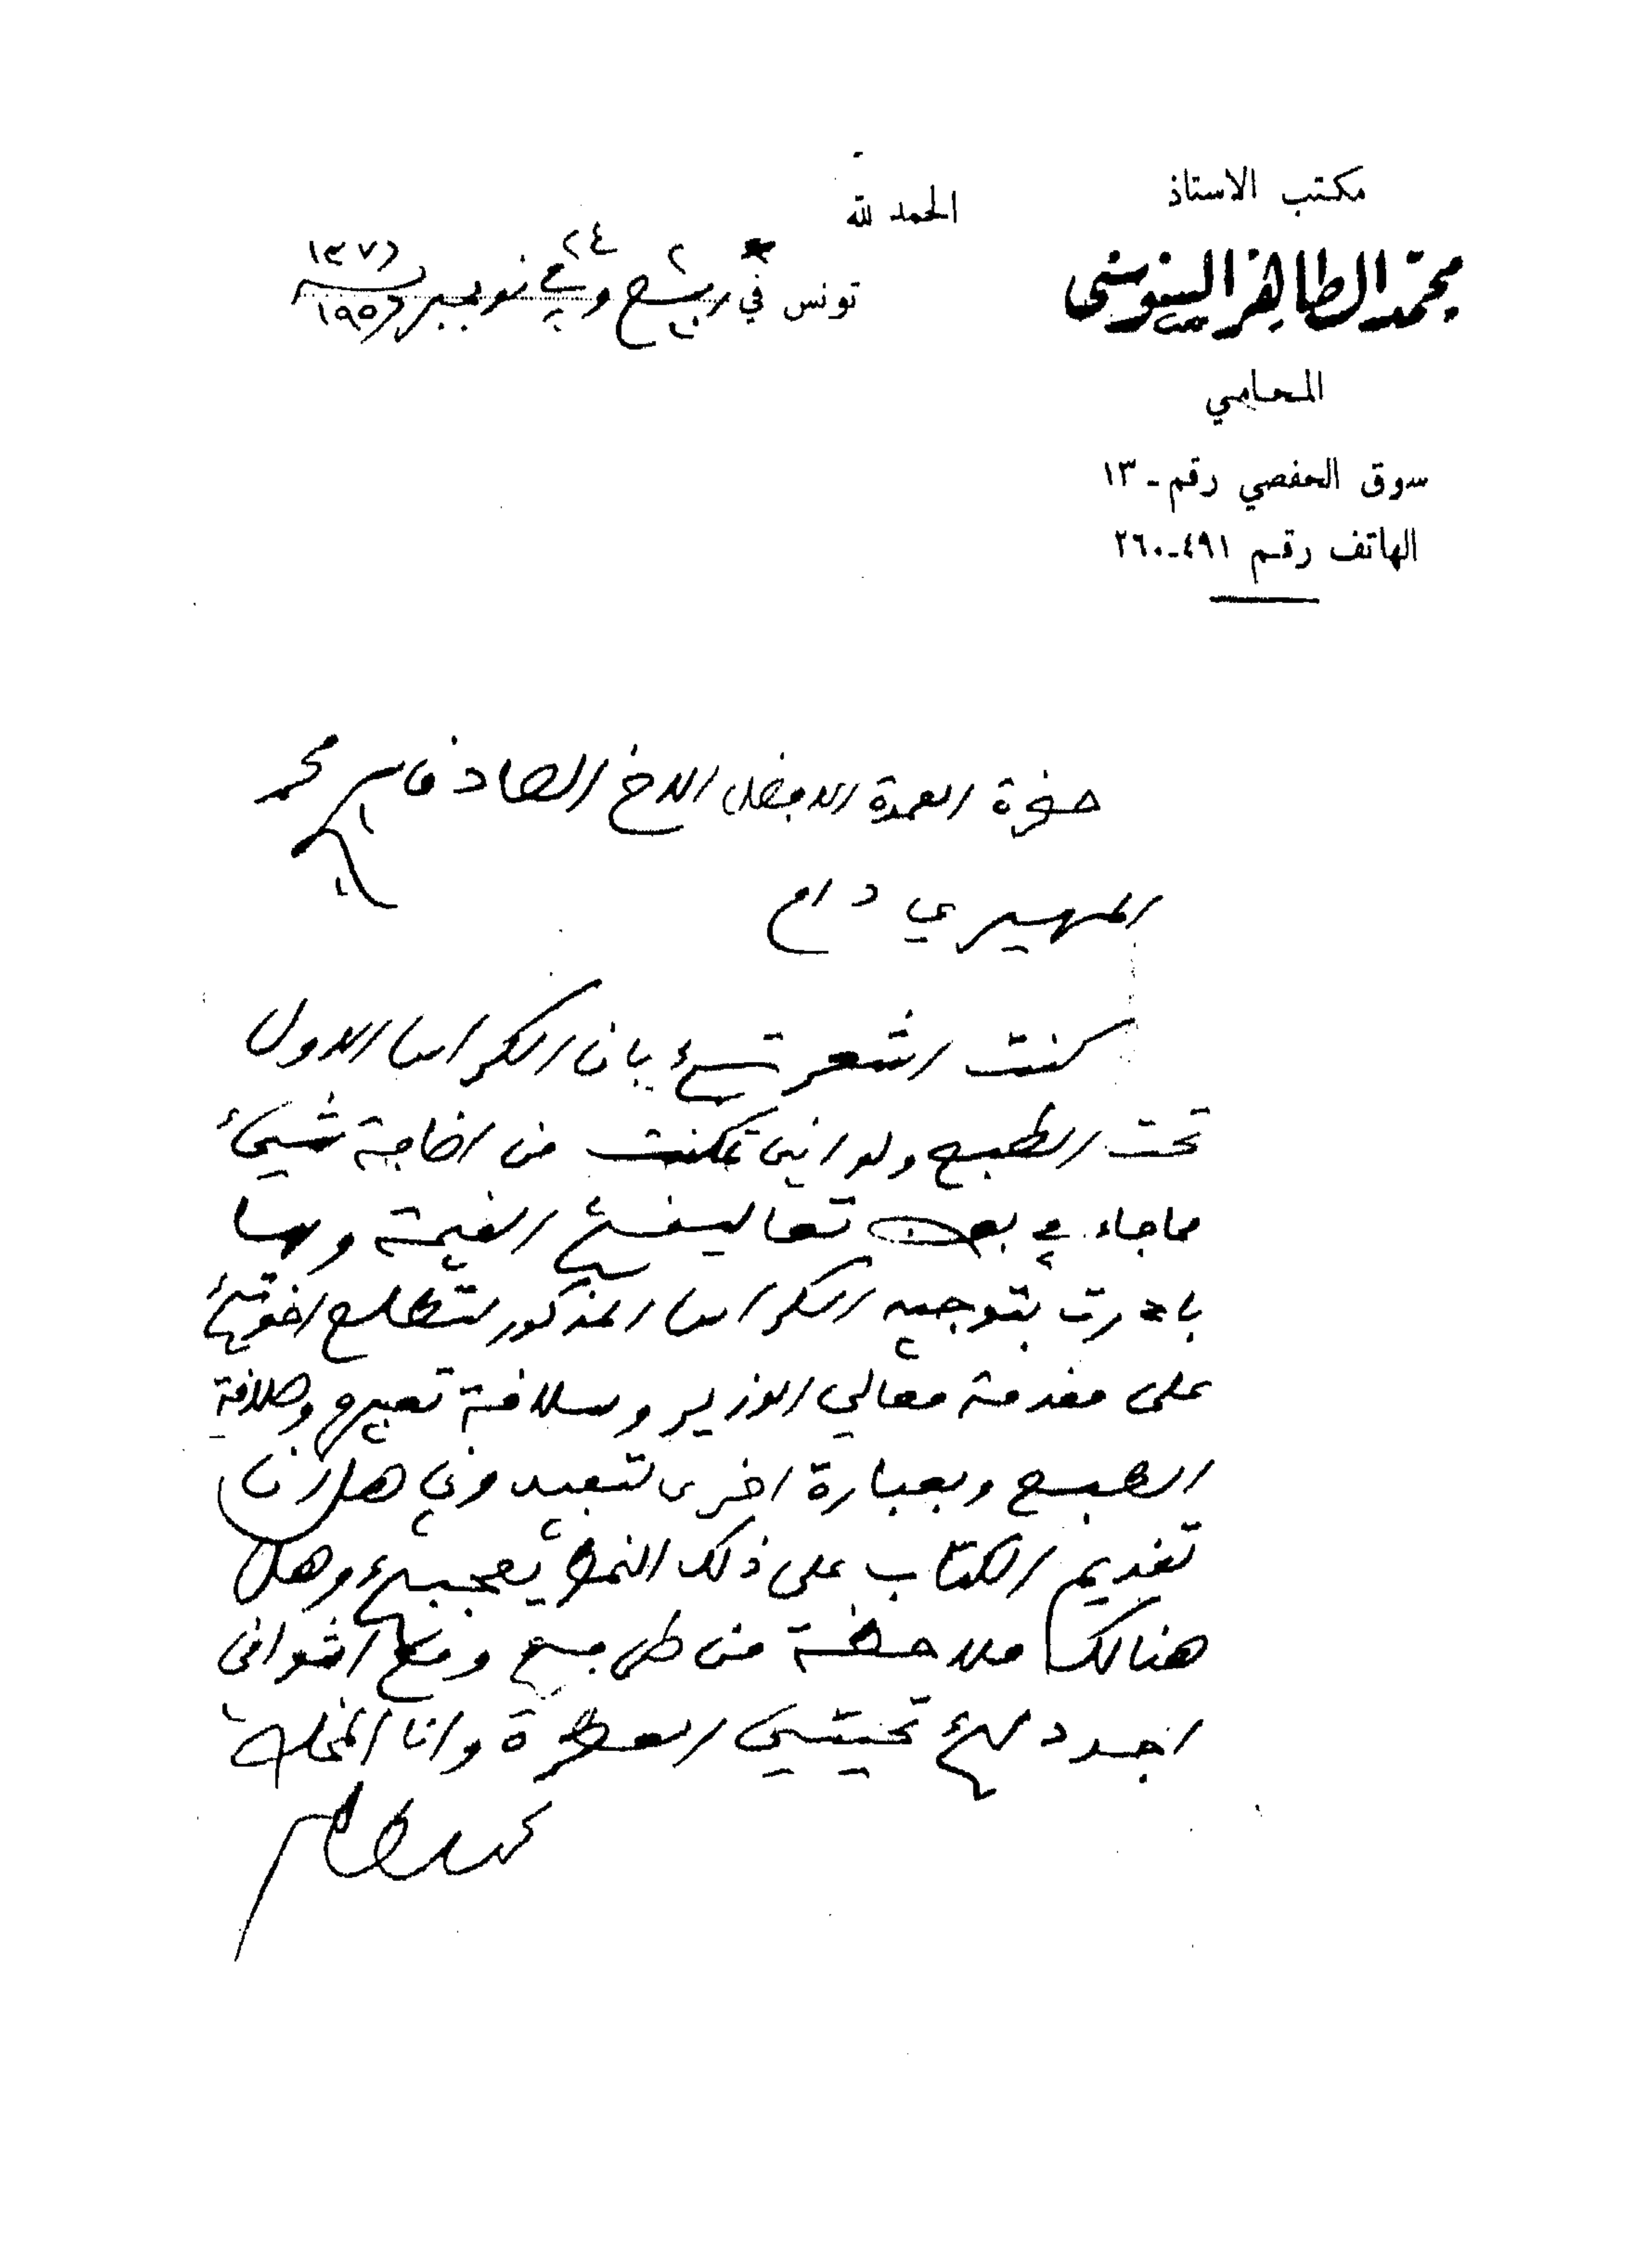 مكتب الاستاذ
محمد الطاهر السنوسي
المحامي
سوق الحفصي رقم - ١٣
الهاتف رقم ٤٩١-٢٦٠
الحمد لله
تونس في ربيع ٢ وفي ٢٤ نوفمبر
١٣٧٦
١٩٥٦
حضرة العمدة الافضل الاخ الصادق محمد
المهيري دام
كنت اشعرتك بان الكراس الاول
تحت الطبع ولو انني تمكنت من اضافة شيئ
مما جاء في بعض تعاليقك القيمة وها
بادرت بتوجيه الكراس المذكور لتطلع اخوتك
على مقدمة معالي الوزير وسلامة تعبيره
الطبع وبعبارة اخرى لتفيدوني هل ان
تقديم الكتاب على ذلك النمط يعجبك وهل
هنالك ملاحظة من طرفكم ومع اشواقي
اجدد لك تحيتي العطرة وانا المخلص
محمد الطاهر